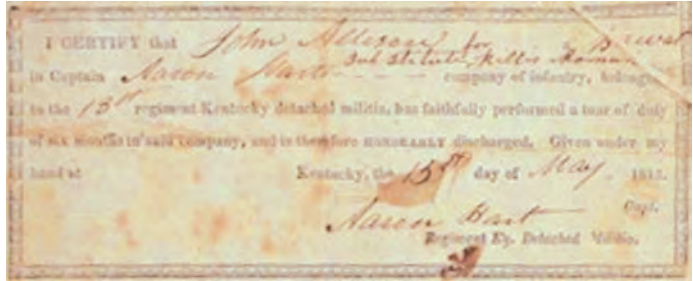 I CERTIFY that John Allison for
Substitute Willis
in Captain Aaron Hart company of infantry, belongs
to the 13th regiment Kentucky detached militia, has faithfully performed a tour of duty
of six months in said company, and is therefore HONORABLY discharged. Given under my
hand at Kentucky, the 15th day of May, 1815.
Aaron Hart Capt.
Regiment Ky. Detached Militia.